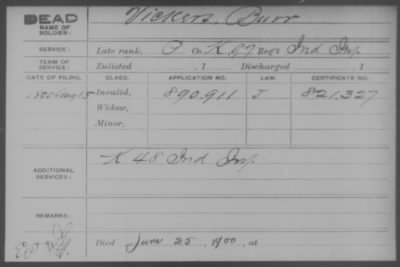 DEAD
NAME OF SOLDIER:
Vickers, Burr
SERVICE:
Late rank, P. Co. K, 97 Reg't Ind Inf
TERM OF SERVICE:
Enlisted , 1 Discharged , 1
DATE OF FILING. CLASS. APPLICATION NO. LAW. CERTIFICATE NO.
Aug 15 Invalid, 890,911 J 821,327
Widow,
Minor,
ADDITIONAL SERVICES:
K 48 Ind Inf.
REMARKS:
Died June 25, 1900, at